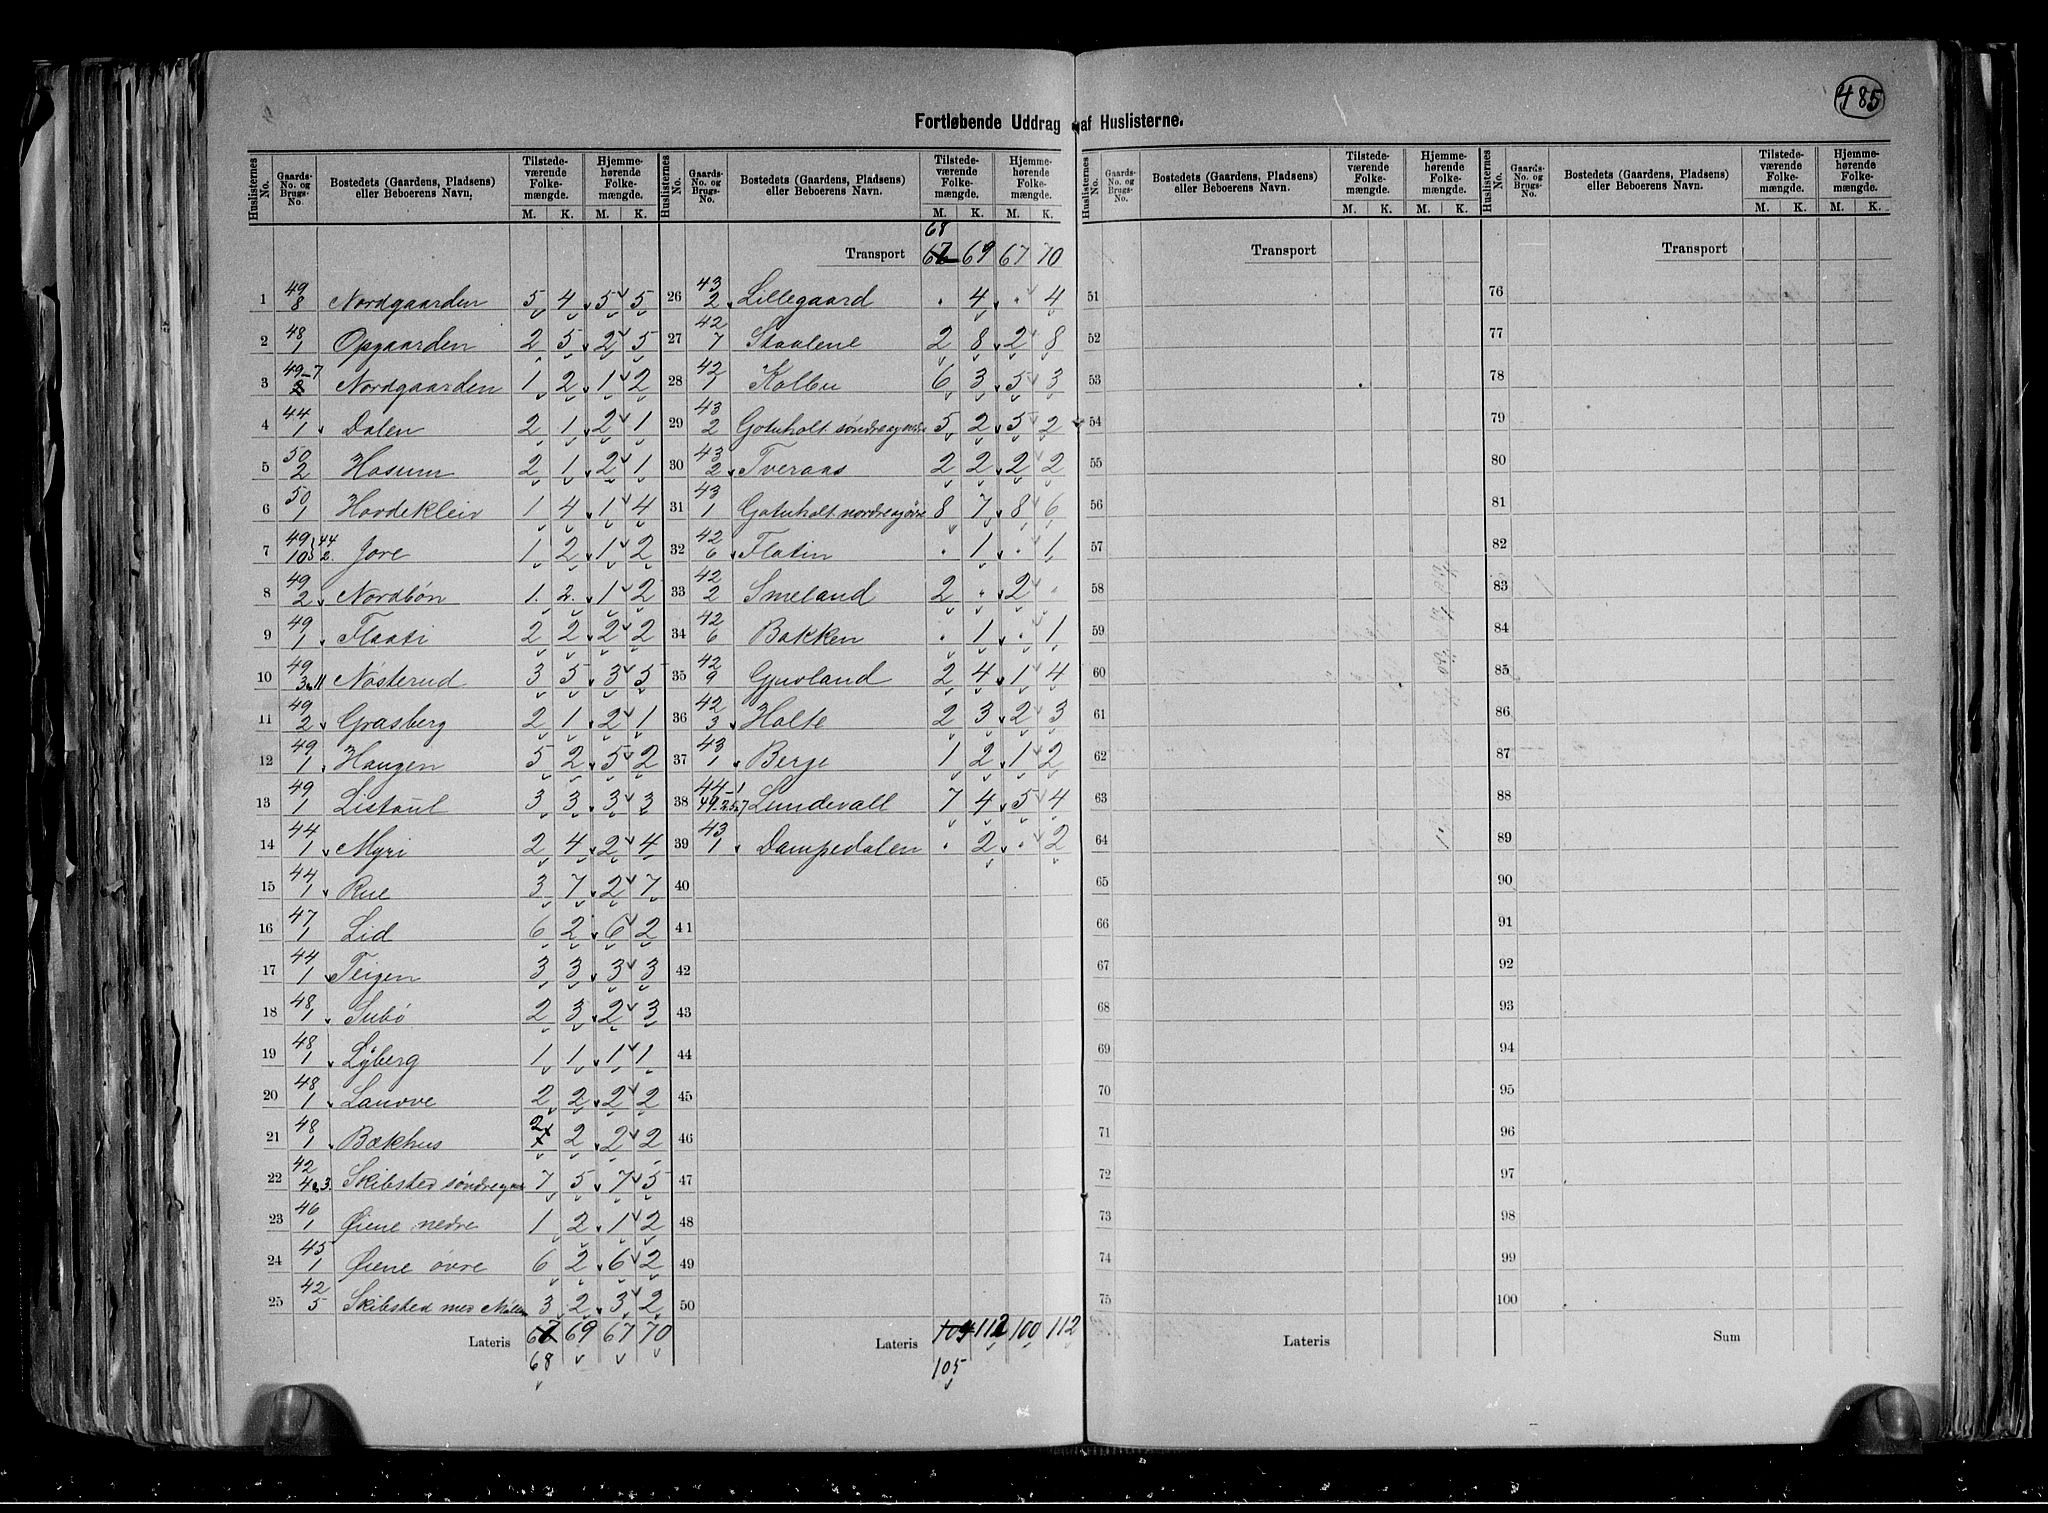 485
Fortløbende Uddrag af Huslisterne.
Huslisternes No. Gaards-No. og Brugs-No. Bostedets (Gaardens, Pladsens) eller Beboerens Navn. Tilstedeværende Folkemængde. M. K. Hjemmehørende Folkemængde. M. K.
1 49/8 Nordgaarden 5 4 5 5
2 48/1 Opgaarden 2 5 2 5
3 49-7 Nordgaarden 1 2 1 2
4 44/1 Dalen 2 1 2 1
5 50/2 Hasum 2 1 2 1
6 50/1 Hovdekleiv 1 4 1 4
7 49/10 44/2 Jore 1 2 1 2
8 49/2 Nordbøn 1 2 1 2
9 49/1 Flaati 2 2 2 2
10 49/3,11 Nøsterud 3 5 3 5
11 49/2 Grasberg 2 1 2 1
12 49/1 Haugen 5 2 5 2
13 49/1 Listaul 3 3 3 3
14 44/1 Myri 2 4 2 4
15 44/1 Rue 3 7 2 7
16 47/1 Lid 6 2 6 2
17 44/1 Teigen 3 3 3 3
18 48/1 Subø 2 3 2 3
19 48/1 Lyberg 1 1 1 1
20 48/1 2 2 2 2
21 48/1 Bækhus 2 2 2 2
22 42/4,3 Skibsted søndre 7 5 7 5
23 46/1 Øiene nedre 1 2 1 2
24 45/1 Øiene øvre 6 2 6 2
25 42/5 Skibsted med 3 2 3 2
Lateris 67 69 67 70
68
Huslisternes No. Gaards-No. og Brugs-No. Bostedets (Gaardens, Pladsens) eller Beboerens Navn. Tilstedeværende Folkemængde. M. K. Hjemmehørende Folkemængde. M. K.
68
Transport 67 69 67 70
26 43/2 Lillegaard . 4 . 4
27 42/7 Staalene 2 8 2 8
28 42/1 Kolbu 6 3 5 3
29 43/2 Gotuholt søndre 5 2 5 2
30 43/2 Tveraas 2 2 2 2
31 43/1 Gotuholt nordre 8 7 8 6
32 42/6 Flatin . 1 . 1
33 42/2 Smeland 2 . 2 .
34 42/6 Bakken . 1 . 1
35 42/9 Gjuvland 2 4 1 4
36 42/3 Holte 2 3 2 3
37 43/1 Berge 1 2 1 2
38 44-1 Lundevall 7 4 5 4
39 43/1 Dampedalen . 2 . 2
40
41
42
43
44
45
46
47
48
49
50
Lateris 104 112 100 112
105
Huslisternes No. Gaards-No. og Brugs-No. Bostedets (Gaardens, Pladsens) eller Beboerens Navn. Tilstedeværende Folkemængde. M. K. Hjemmehørende Folkemængde. M. K.
Transport
51
52
53
54
55
56
57
58
59
60
61
62
63
64
65
66
67
68
69
70
71
72
73
74
75
Lateris
Huslisternes No. Gaards-No. og Brugs-No. Bostedets (Gaardens, Pladsens) eller Beboerens Navn. Tilstedeværende Folkemængde. M. K. Hjemmehørende Folkemængde. M. K.
Transport
76
77
78
79
80
81
82
83
84
85
86
87
88
89
90
91
92
93
94
95
96
97
98
99
100
Sum